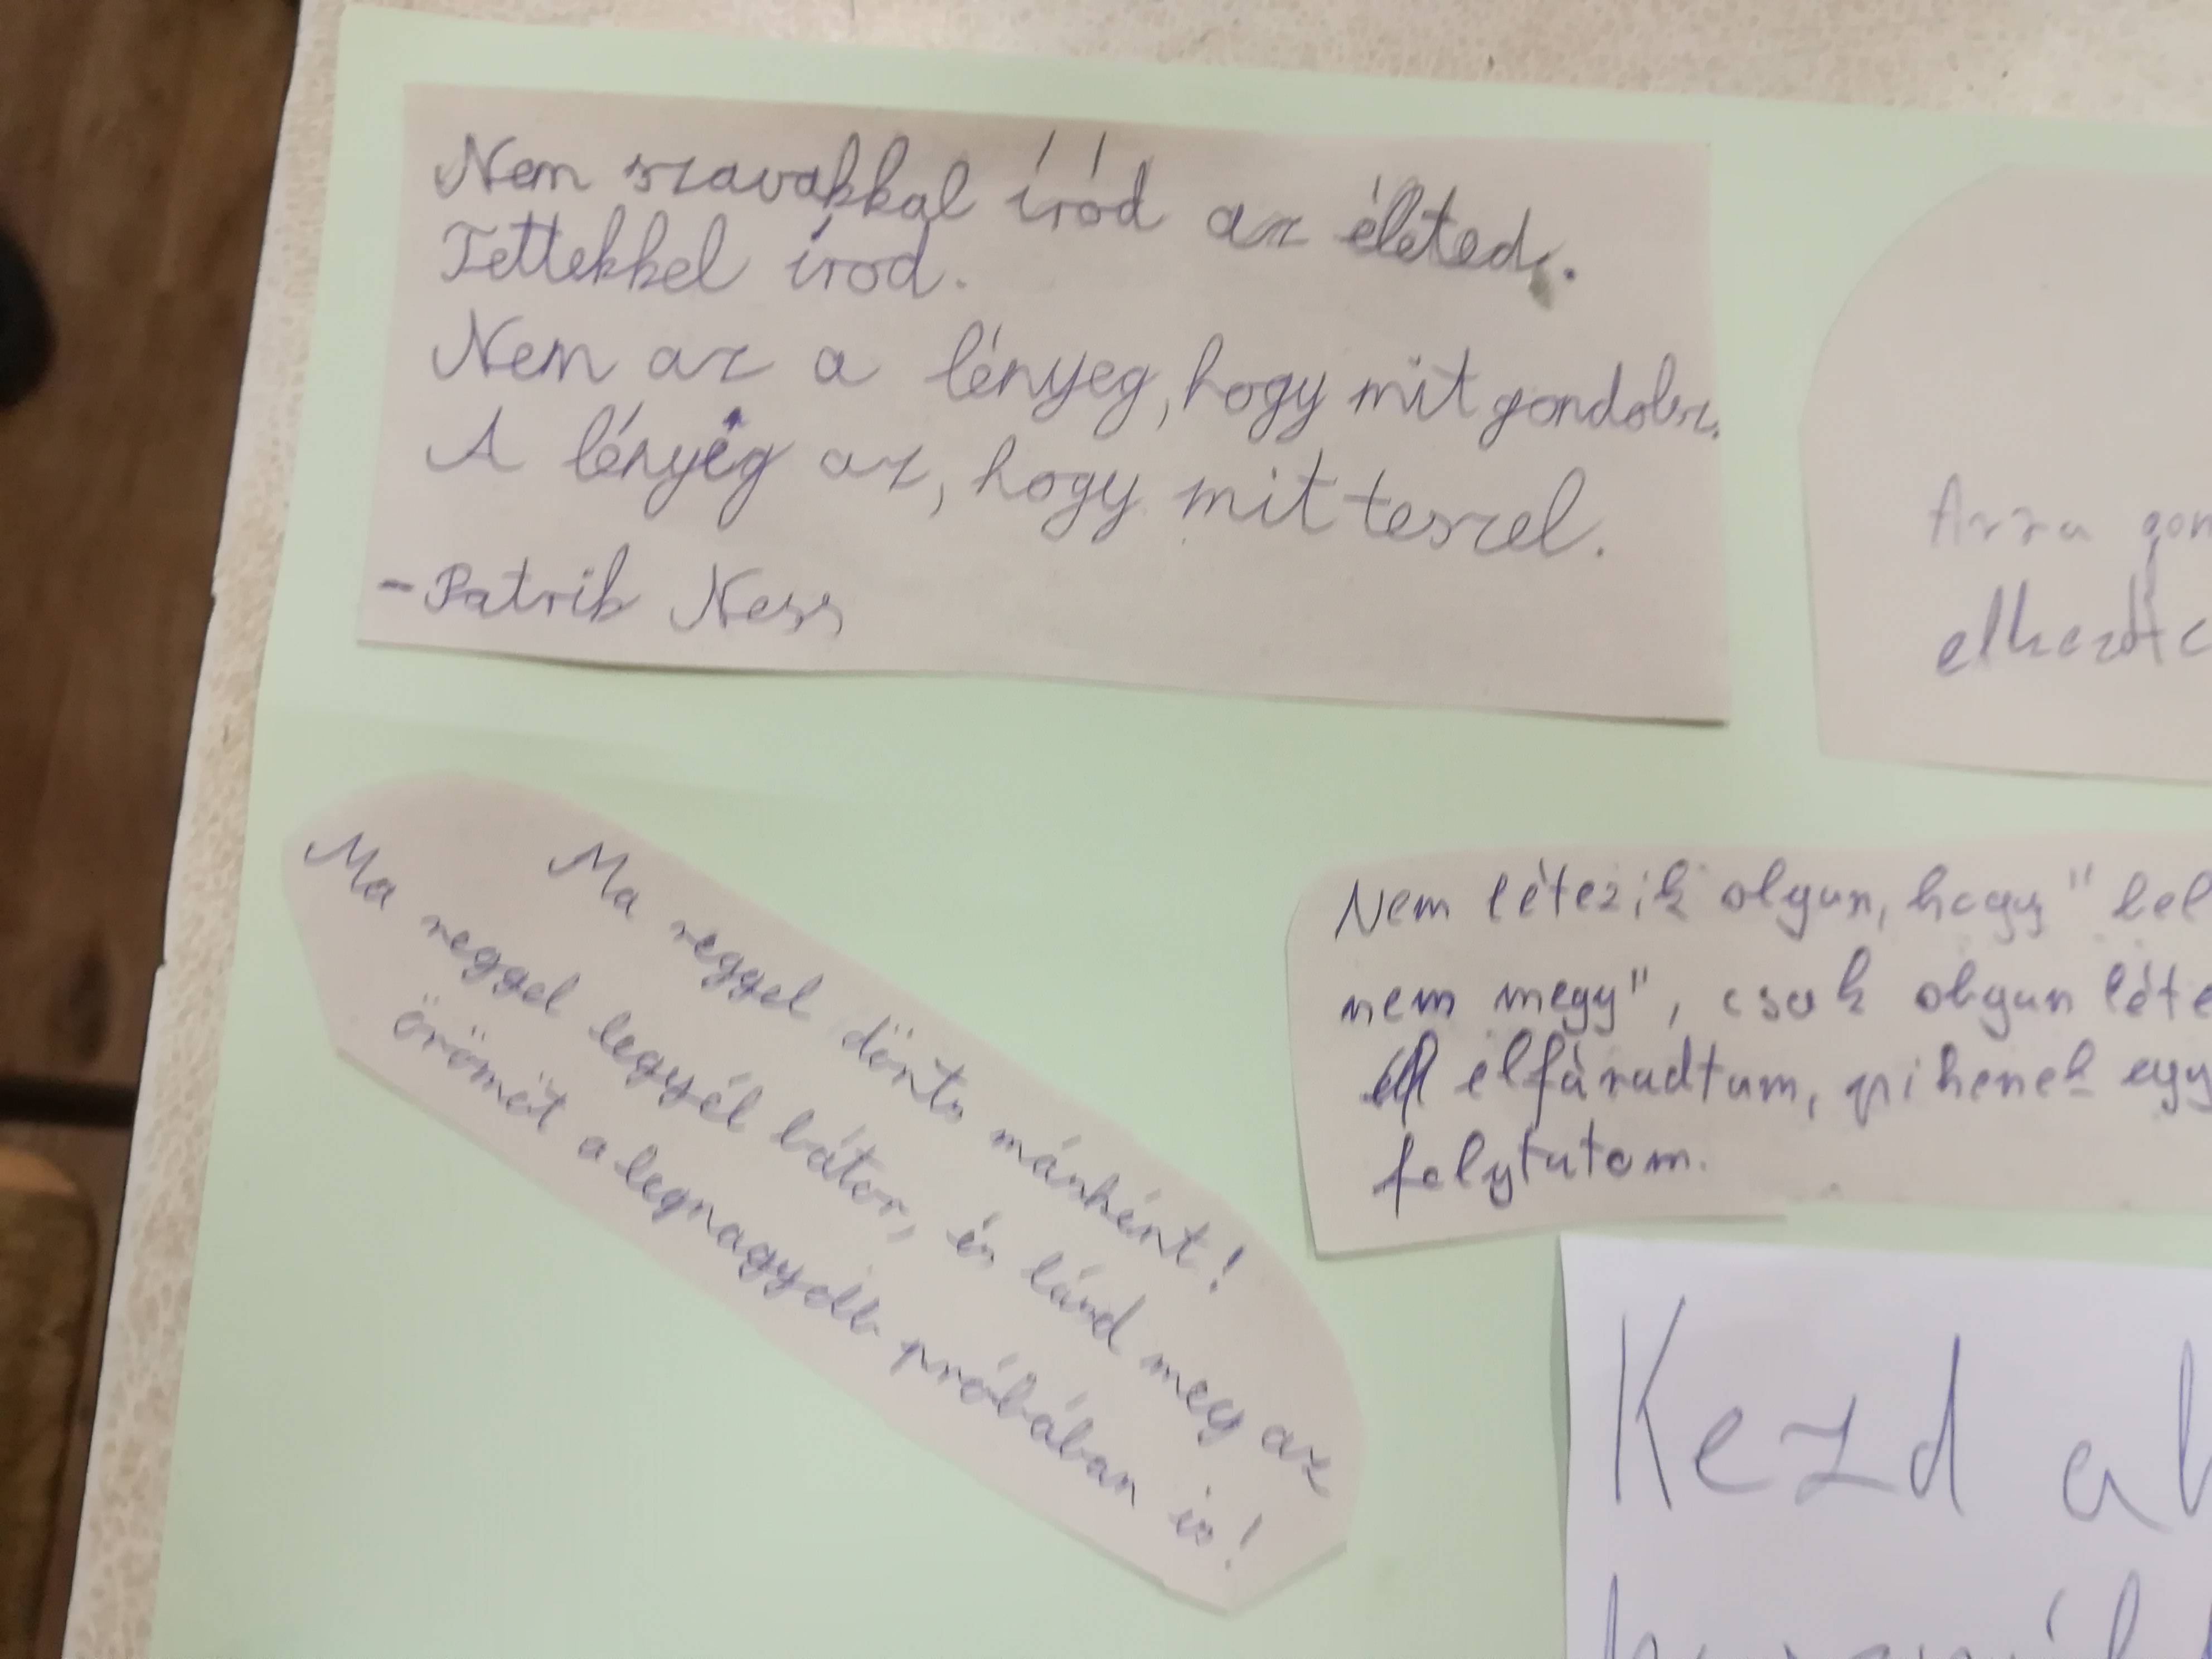 Nem szavakkal íród az életed.
Tettekkel írod.
Nem az a lényeg, hogy mit gondolsz.
A lényeg az, hogy mit teszel.
-Patrik Ness
Arra gon
elkezdtc
Ma reggel dönts másként!
Ma reggel legyél bátor, és lásd meg az
örömöt a legnagyobb próbában is!
Nem létezik olyan, hogy "lel
nem megy", csak olyan léte
elfáradtam, pihenek egy
folytatom.
Kezd al